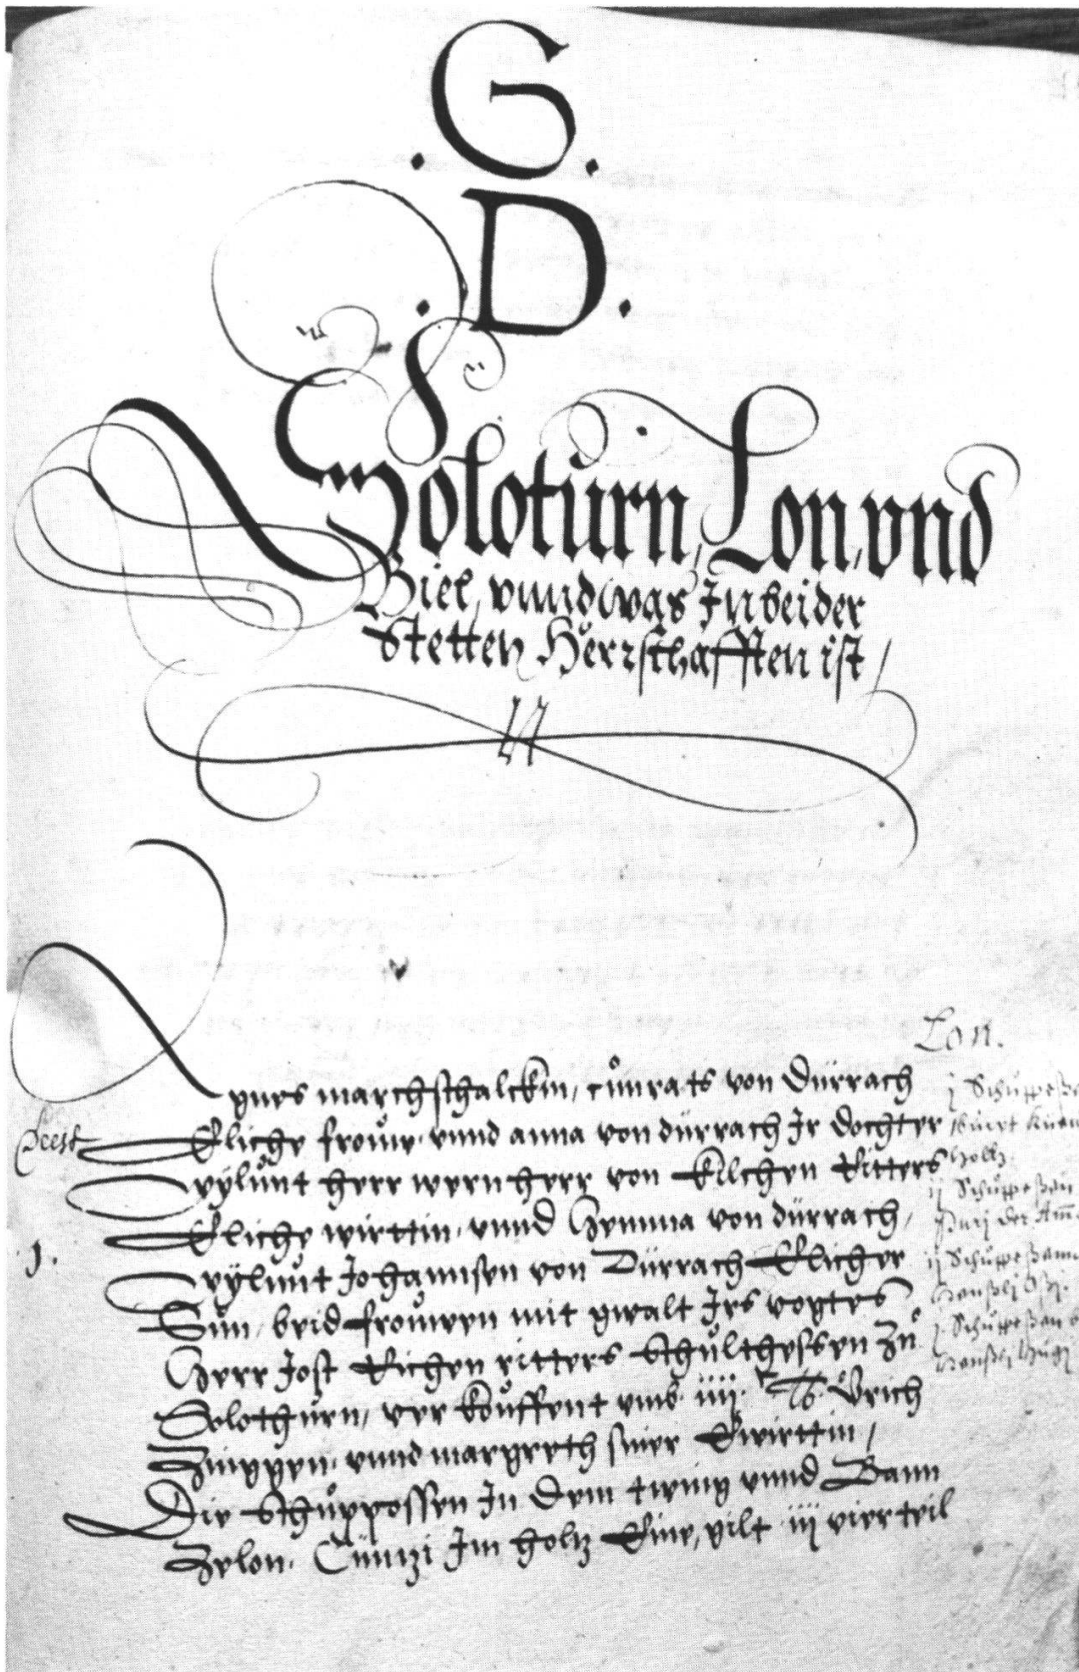 .G.
.D.
Soloturn, Lon, vnd
Biel, vnnd was In beider
Stetten Herrschafften ist /
Lon.
Agnes marchschalckin, cůnrats von Dürrach
Eliche frouw, vnnd anna von dürrach Ir dochter
wÿlunt herr wernherr von Kilchen Ritters
Eliche wirttin, vnnd Hemma von dürrach,
wÿlunt Johannsen von Dürrach Elicher
Sůn, beid frouwen mit gwalt Irs vogtes
Herr Jost Richen ritters Schultheissen zů
Solothurn, ver kouffent vmb iiij c lb Ůlrich
vnnd margreth siner Ewirttin /
Die Schůppossen In dem twing vnnd Bann
Zelon. Cůntzi Im holtz Eine, gilt iij vierteil
Deest
1.
j Schůppossen
holtz
ij Schůppossen
ij Schůppossen
j Schůppossen